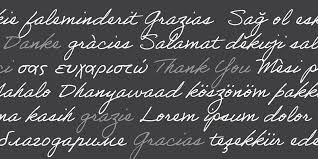 kie faleminderit Grazias Sağ ol esk
Danke gràcies Salamat děkuji sal
ci σας ευχαριστώ Thank You Mèsi p
Mahalo Dhanyawaad köszönöm pakk
ma kasih grazie Lorem ipsum dolor
благодариме Gracias teşekkür eder